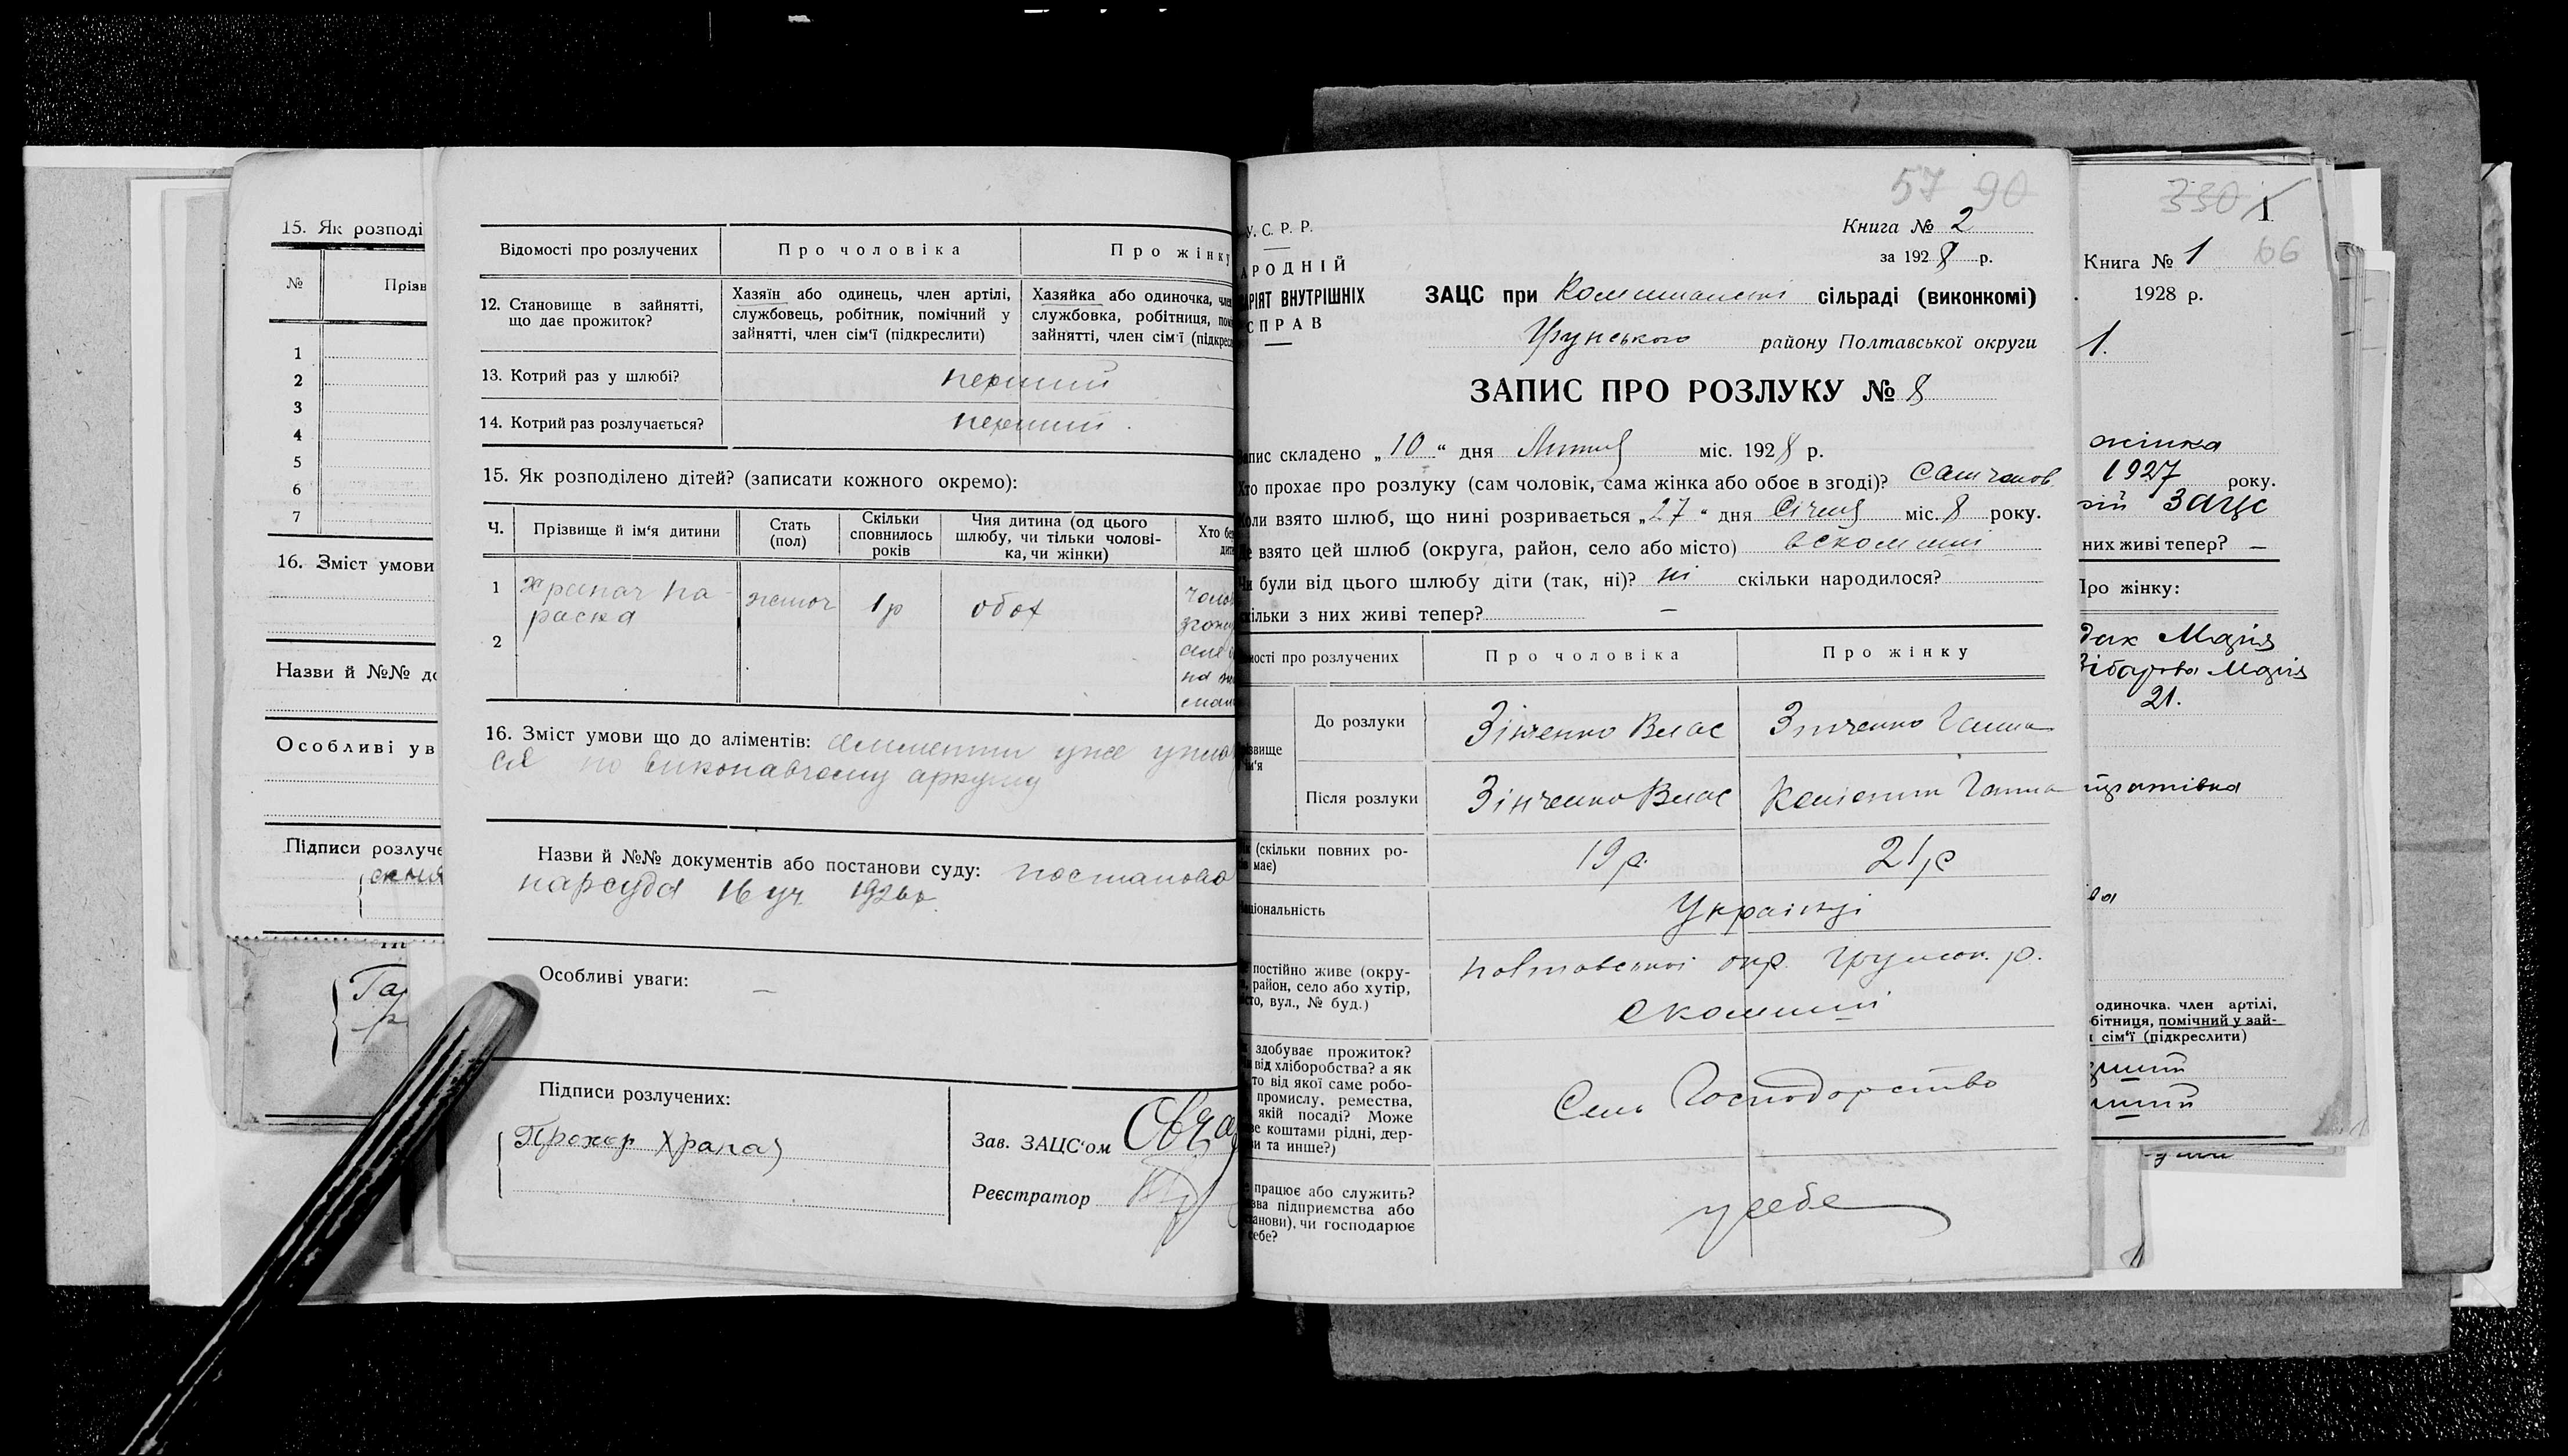 15. Як розподі
№
Прізв
1
2
3
4
5
6
7
16. Зміст умови
Назви й №№ до
Особливі ув
Підписи розлуче
Відомості про розлучених
Про чоловіка
Про жінку
12. Становище в зайнятті,
що дає прожиток?
Хазяїн або одинець, член артілі,
службовець, робітник, помічний у
зайнятті, член сім'ї (підкреслити)
Хазяйка або одиночка, член
службовка, робітниця, помі
зайнятті, член сім'ї (підкресл
13. Котрий раз у шлюбі?
перший
14. Котрий раз розлучається?
перший.
15. Як розподілено дітей? (записати кожного окремо):
Ч.
Прізвище й ім'я дитини
Стать
(пол)
Скільки
сповнилось
років
Чия дитина (од цього
шлюбу, чи тільки чолові-
ка, чи жінки)
Хто бе
дит
1
Храпач Па-
раска
жіноч
1 р
обох
2
16. Зміст умови що до аліментів: алименти уже
ся по виконавчому аркушу
Назви й №№ документів або постанови суду: постанова
нарсуда 16 уч.
Особливі уваги: —
Підписи розлучених:
Прохор Храпач
Зав. ЗАЦС'ом
Реєстратор
57 90
У. С. Р. Р.
АРОДНІЙ
АРІЯТ ВНУТРІШНІХ
СПРАВ
Книга № 2
за 1928 р.
ЗАЦС при сільраді (виконкомі)
Грунського району Полтавської округи
ЗАПИС ПРО РОЗЛУКУ № 8
апис складено „10“ дня міс. 1928 р.
Хто прохає про розлуку (сам чоловік, сама жінка або обоє в згоді)? сам чолов
Коли взято шлюб, що нині розривається „27“ дня Січня міс. 8 року.
Де взято цей шлюб (округа, район, село або місто)
Чи були від цього шлюбу діти (так, ні)? ні скільки народилося?
кільки з них живі тепер? —
мості про розлучених
Про чоловіка
Про жінку
різвище
ім'я
До розлуки
Зінченко Влас
Зінченко Ганна
Після розлуки
Зінченко Влас
Ганна
(скільки повних ро-
має)
19 р.
21 р
аціональність
Українці
постійно живе (окру-
, район, село або хутір,
сто, вул., № буд.)
Полтавської окр. Грунсок. р.
здобуває прожиток?
від хліборобства? а як
то від якої саме робо-
промислу, ремества,
якій посаді? Може
ве коштами рідні, дер-
и та инше?)
Сель Господорство
працює або служить?
зва підприємства або
танови), чи господарює
себе?
у себе
330 1
66
Книга № 1
1928 р.
1.
жінка
1927 року.
ЗАЦС
них живі тепер? —
Про жінку:
Марія
Марія
21.
одиночка. член артілі,
бітниця, помічний у зай-
сім'ї (підкреслити)